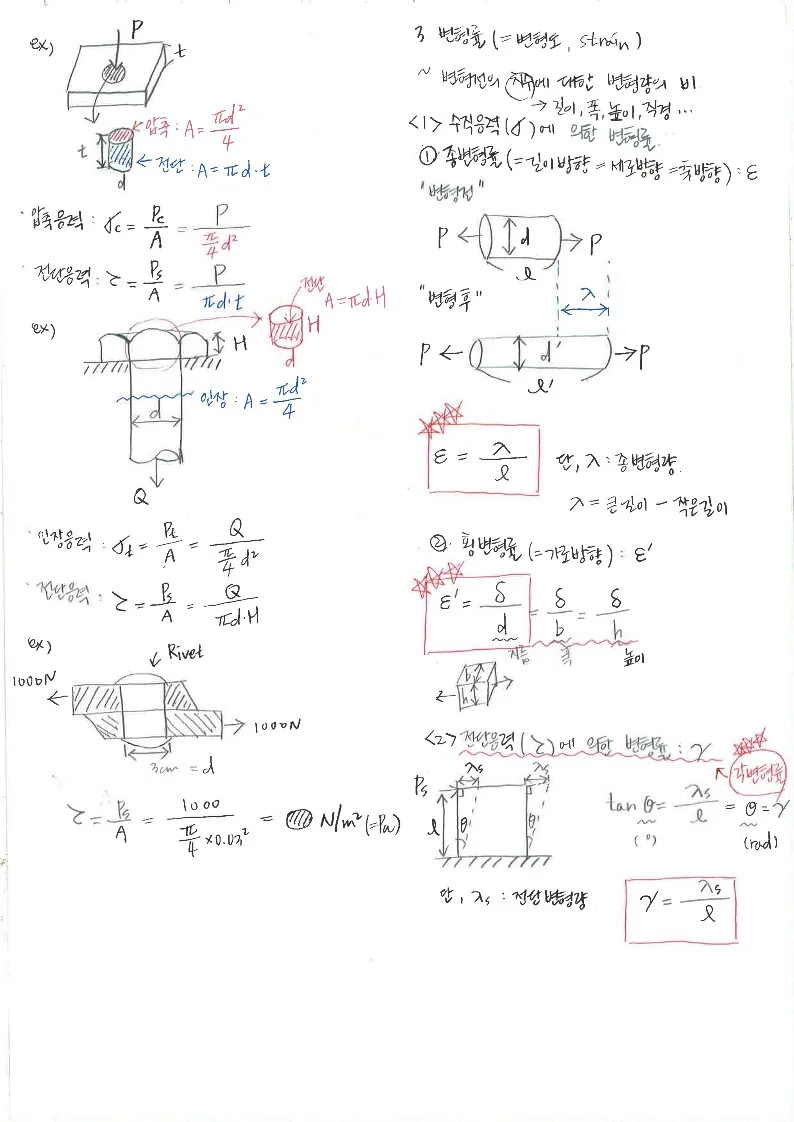 ex)
P
t
압축 : A = πd²/4
t
전단 : A = πd·t
d
· 압축응력 : σc = Pc/A = P/(π/4 d²)
· 전단응력 : τ = Ps/A = P/(πd·t)
ex)
전단
A = πdH
H
H
d
인장 : A = πd²/4
d
Q
· 인장응력 : σt = Pt/A = Q/(π/4 d²)
· 전단응력 : τ = Ps/A = Q/(πd·H)
ex)
Rivet
1000N
1000N
3cm = d
τ = Ps/A = 1000/(π/4 × 0.03²) = N/m² (=Pa)
3 변형률 (= 변형도, strain)
~ 변형전의 치수에 대한 변형량의 비
→ 길이, 폭, 높이, 직경 ...
<1> 수직응력(σ)에 의한 변형률.
① 종변형률 (= 길이방향 = 세로방향 = 축방향) : ε
"변형전"
P d P
l
"변형후"
λ
P d' P
l'
ε = λ/l
단, λ : 종변형량.
λ = 큰길이 - 작은길이
② 횡변형률 (= 가로방향) : ε'
ε' = δ/d = δ/b = δ/h
지름 폭 높이
b
h
<2> 전단응력(τ)에 의한 변형률 : γ
각변형률
Ps λs λs
l θ θ
tan θ = λs/l = θ = γ
(°) (rad)
단, λs : 전단변형량
γ = λs/l